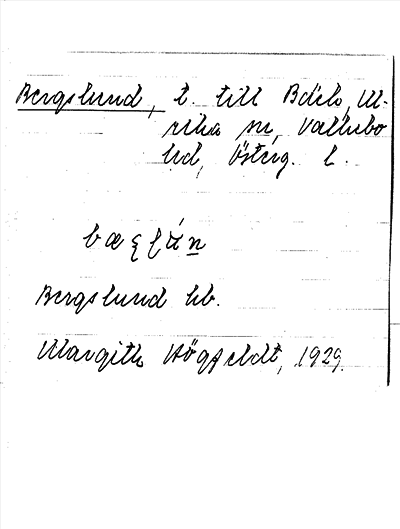 Bergslund, t. till Bdeb, Ul-
rika sn, Vallebo
hd, Österg. l.
Bergslund hb.
Margith Högfeldt, 1929.